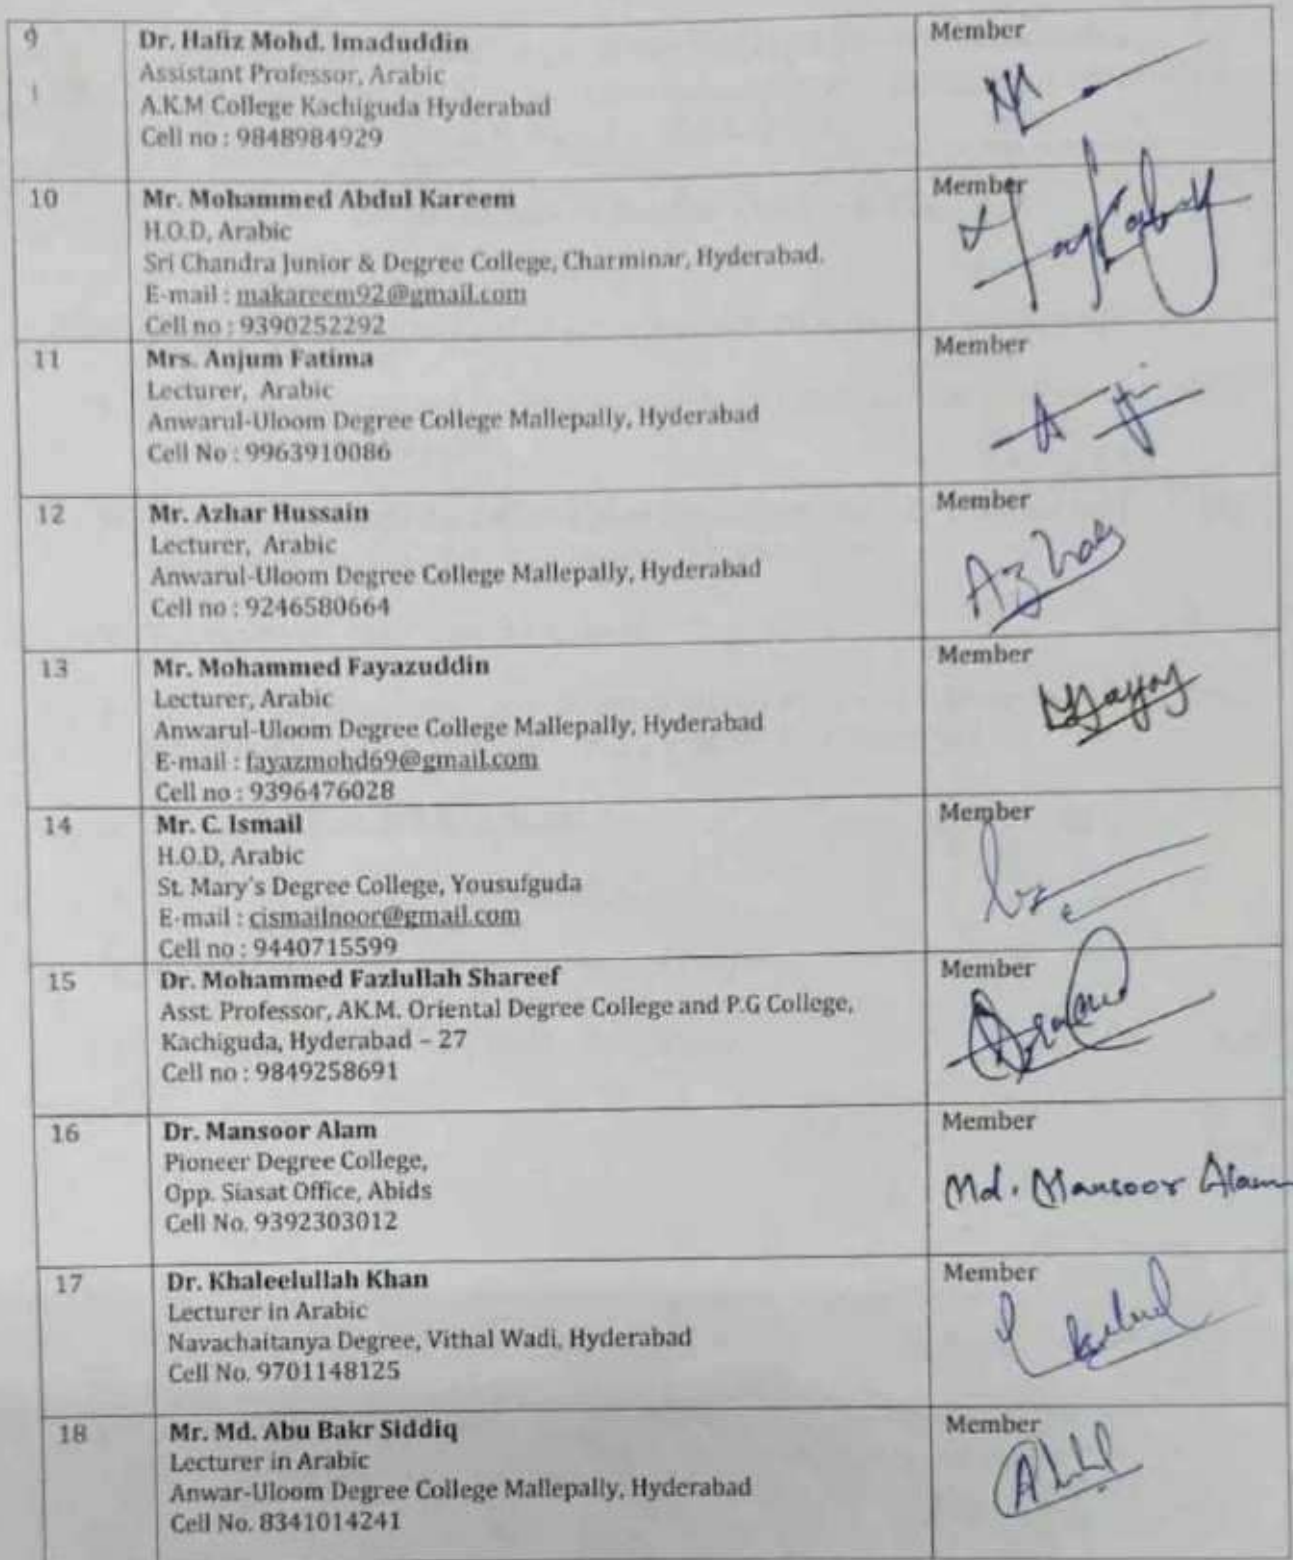 9
Dr. Hafiz Mohd. Imaduddin
Assistant Professor, Arabic
A.K.M College Kachiguda Hyderabad
Cell no : 9848984929
Member
10
Mr. Mohammed Abdul Kareem
H.O.D, Arabic
Sri Chandra Junior & Degree College, Charminar, Hyderabad.
E-mail : makareem92@gmail.com
Cell no : 9390252292
Member
11
Mrs. Anjum Fatima
Lecturer, Arabic
Anwarul-Uloom Degree College Mallepally, Hyderabad
Cell No : 9963910086
Member
12
Mr. Azhar Hussain
Lecturer, Arabic
Anwarul-Uloom Degree College Mallepally, Hyderabad
Cell no : 9246580664
Member
Azhar
13
Mr. Mohammed Fayazuddin
Lecturer, Arabic
Anwarul-Uloom Degree College Mallepally, Hyderabad
E-mail : fayazmohd69@gmail.com
Cell no : 9396476028
Member
14
Mr. C. Ismail
H.O.D, Arabic
St. Mary's Degree College, Yousufguda
E-mail : cismailnoor@gmail.com
Cell no : 9440715599
Member
15
Dr. Mohammed Fazlullah Shareef
Asst. Professor, AK.M. Oriental Degree College and P.G College,
Kachiguda, Hyderabad – 27
Cell no : 9849258691
Member
16
Dr. Mansoor Alam
Pioneer Degree College,
Opp. Siasat Office, Abids
Cell No. 9392303012
Member
Md. Mansoor Alam
17
Dr. Khaleelullah Khan
Lecturer in Arabic
Navachaitanya Degree, Vithal Wadi, Hyderabad
Cell No. 9701148125
Member
18
Mr. Md. Abu Bakr Siddiq
Lecturer in Arabic
Anwar-Uloom Degree College Mallepally, Hyderabad
Cell No. 8341014241
Member